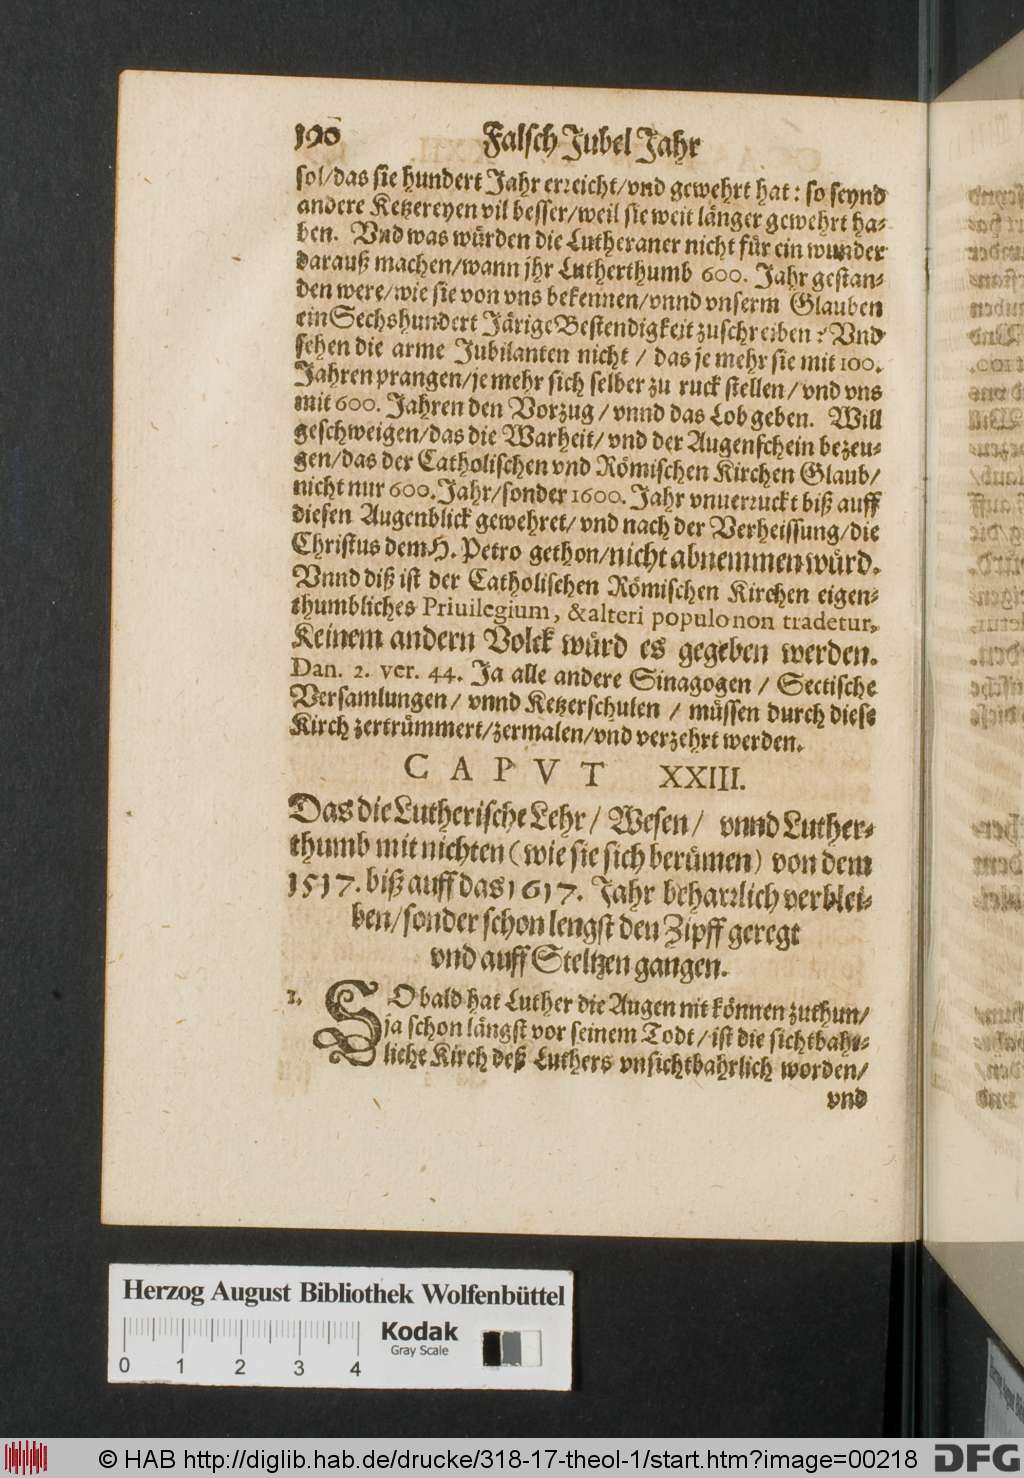 190 Falsch Jubel Jahr
sol/das sie hundert Jahr erreicht/vnd gewehrt hat: so seynd
andere Ketzereyen vil besser/weil sie weit länger gewehrt ha-
ben. Vnd was würden die Lutheraner nicht für ein wunder
darauß machen/wann jhr Lutherthumb 600. Jahr gestan-
den were/wie sie von vns bekennen/vnnd vnserm Glauben
ein Sechshundert Järige Bestendigkeit zuschreiben? Vnd
sehen die arme Jubilanten nicht / das je mehr sie mit 100.
Jahren prangen/je mehr sich selber zu ruck stellen/ vnd vns
mit 600. Jahren den Vorzug / vnnd das Lob geben. Will
geschweigen/das die Warheit/ vnd der Augenschein bezeu-
gen/das der Catholischen vnd Römischen Kirchen Glaub/
nicht nur 600. Jahr/sonder 1600. Jahr vnuerruckt biß auff
diesen Augenblick gewehret/ vnd nach der Verheissung/die
Christus dem H. Petro gethon/nicht abnemmen würd.
Vnnd diß ist der Catholischen Römischen Kirchen eigen-
thumbliches Priuilegium, & alteri populo non tradetur,
Keinem andern Volck würd es gegeben werden.
Dan. 2. ver. 44. Ja alle andere Sinagogen / Sectische
Versamlungen/ vnnd Ketzerschulen / müssen durch diese
Kirch zertrümmert/zermalen/vnd verzehrt werden.
CAPVT XXIII.
Das die Lutherische Lehr/ Wesen/ vnnd Luther-
thumb mit nichten (wie sie sich berümen) von dem
1517. biß auff das 1617. Jahr beharrlich verblei-
ben/sonder schon lengst den Zipff geregt
vnd auff Steltzen gangen.
1. SO bald hat Luther die Augen nit können zuthun/
ja schon längst vor seinem Todt / ist die sichtbahr-
liche Kirch deß Luthers vnsichtbahrlich worden/
vnd
Herzog August Bibliothek Wolfenbüttel
Kodak
Gray Scale
0 1 2 3 4
© HAB http://diglib.hab.de/drucke/318-17-theol-1/start.htm?image=00218
DFG